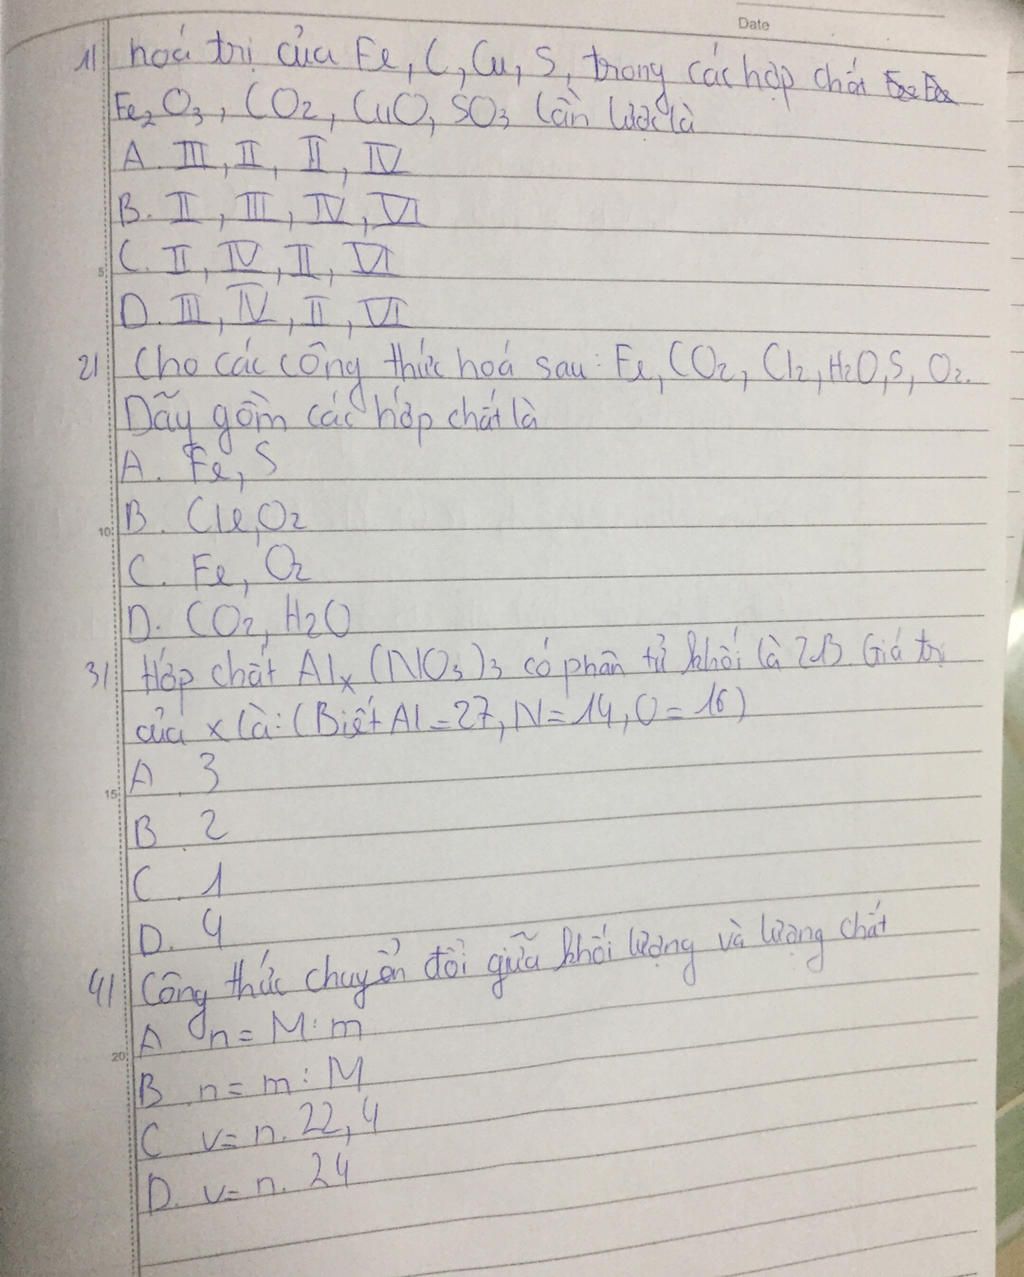 Date
1) hoá trị của Fe, C, Cu, S, trong các hợp chất
Fe2O3, CO2, CuO, SO3 lần lược là
A. III, II, II, IV
B. II, III, IV, VI
5
C. II, IV, II, VI
D. III, IV, II, VI
2) Cho các công thức hoá sau: Fe, CO2, Cl2, H2O, S, O2.
Dãy gồm các hợp chất là
A. Fe, S
10
B. Cle, O2
C. Fe, O2
D. CO2, H2O
3) Hợp chất Alx(NO3)3 có phân tử khối là 213. Giá trị
của x là: (Biết Al=27, N=14, O=16)
A 3
15
B. 2
C. 1
D. 4
4) Công thức chuyển đổi giữa khối lượng và lượng chất
A n = M : m
20
B. n = m : M
C v = n. 22,4
D. v = n. 24